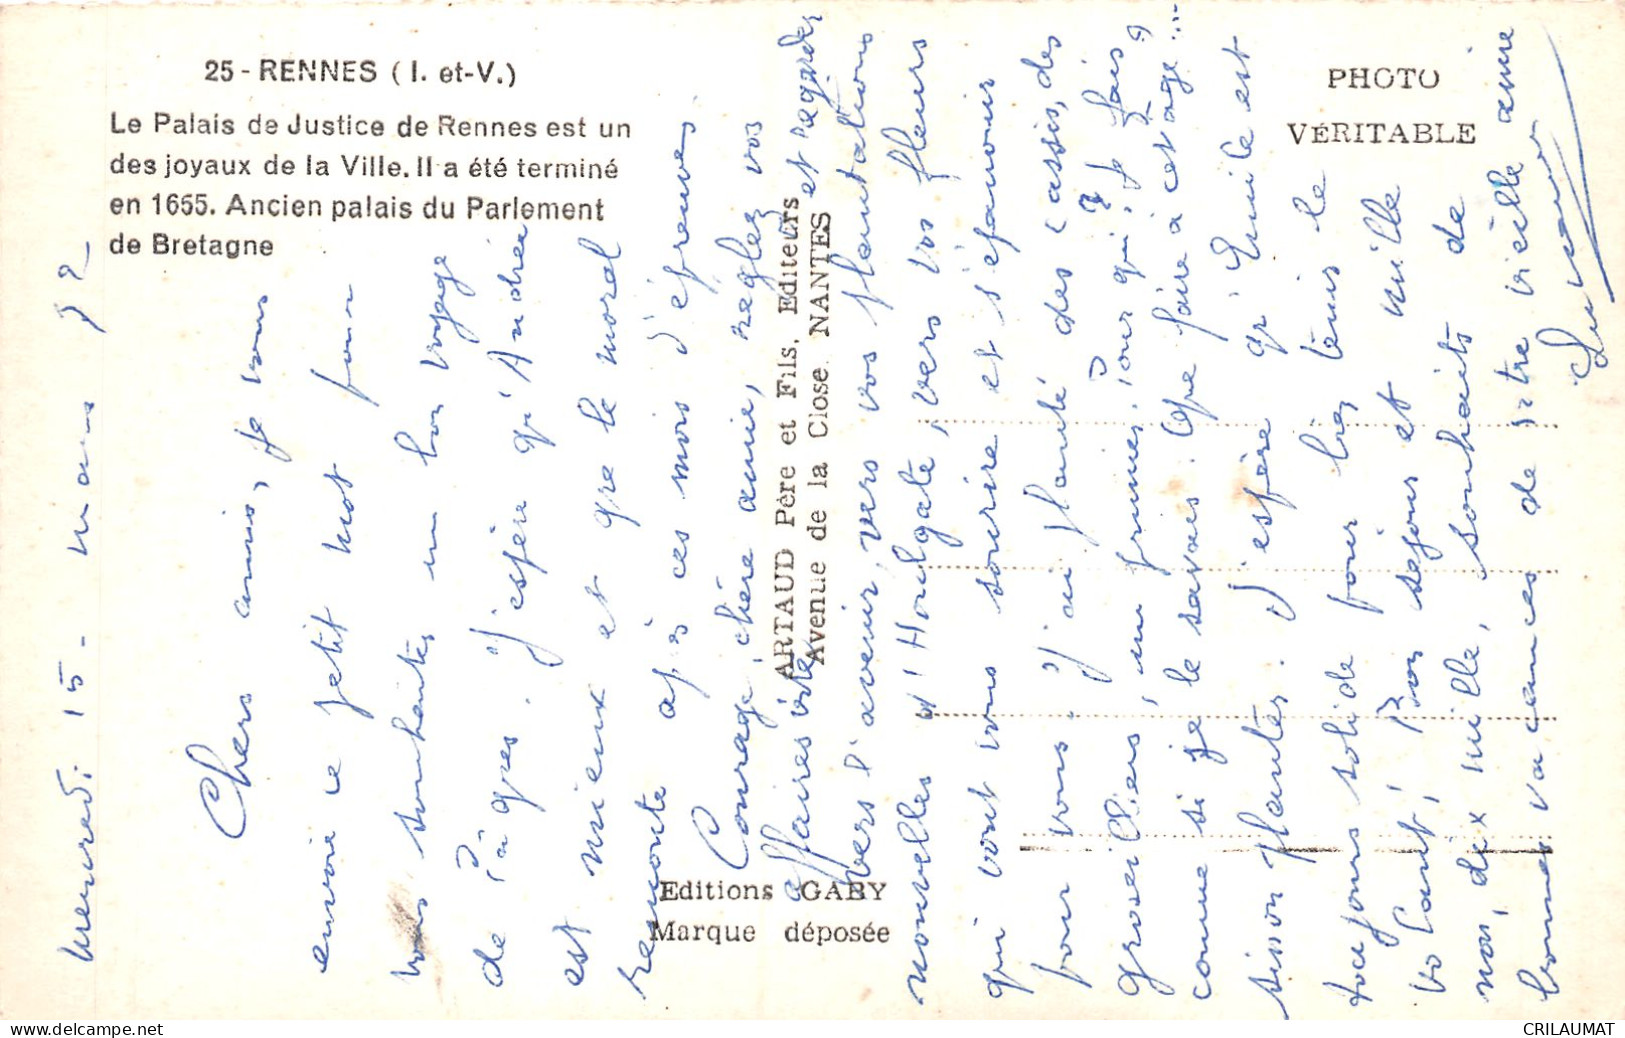 25 - RENNES ( I. et-V.)
Le Palais de Justice de Rennes est un
des joyaux de la Ville. Il a été terminé
en 1655. Ancien palais du Parlement
de Bretagne
PHOTO
VÉRITABLE
ARTAUD Père et Fils. Editeurs
Avenue de la Close. NANTES
Editions GABY
Marque déposée
mercredi 15 - mars
Chers amis, je vous
envoie ce petit mot pour
vous souhaiter un bon voyage
de Pâques. J'espère qu'Andrée
est mieux et que le moral
remonte après ces mois d'épreuves
Courage, chère amie, réglez vos
affaires vite et regardez
vers l'avenir, vers vos plantations
nouvelles d'Houlgate, vers vos fleurs
qui vont vous sourire et s'épanouir
pour vous. J'ai planté des cassis, des
groseilliers, un prunier, pour qui ? Je fais
comme si je le savais. Que faire à cet âge ...
sinon planter. J'espère qu'Emile est
toujours solide pour bien tenir le
coup ! Bon séjour et mille
non, dix mille, souhaits de
bonnes vacances de votre vieille amie
CRILAUMAT